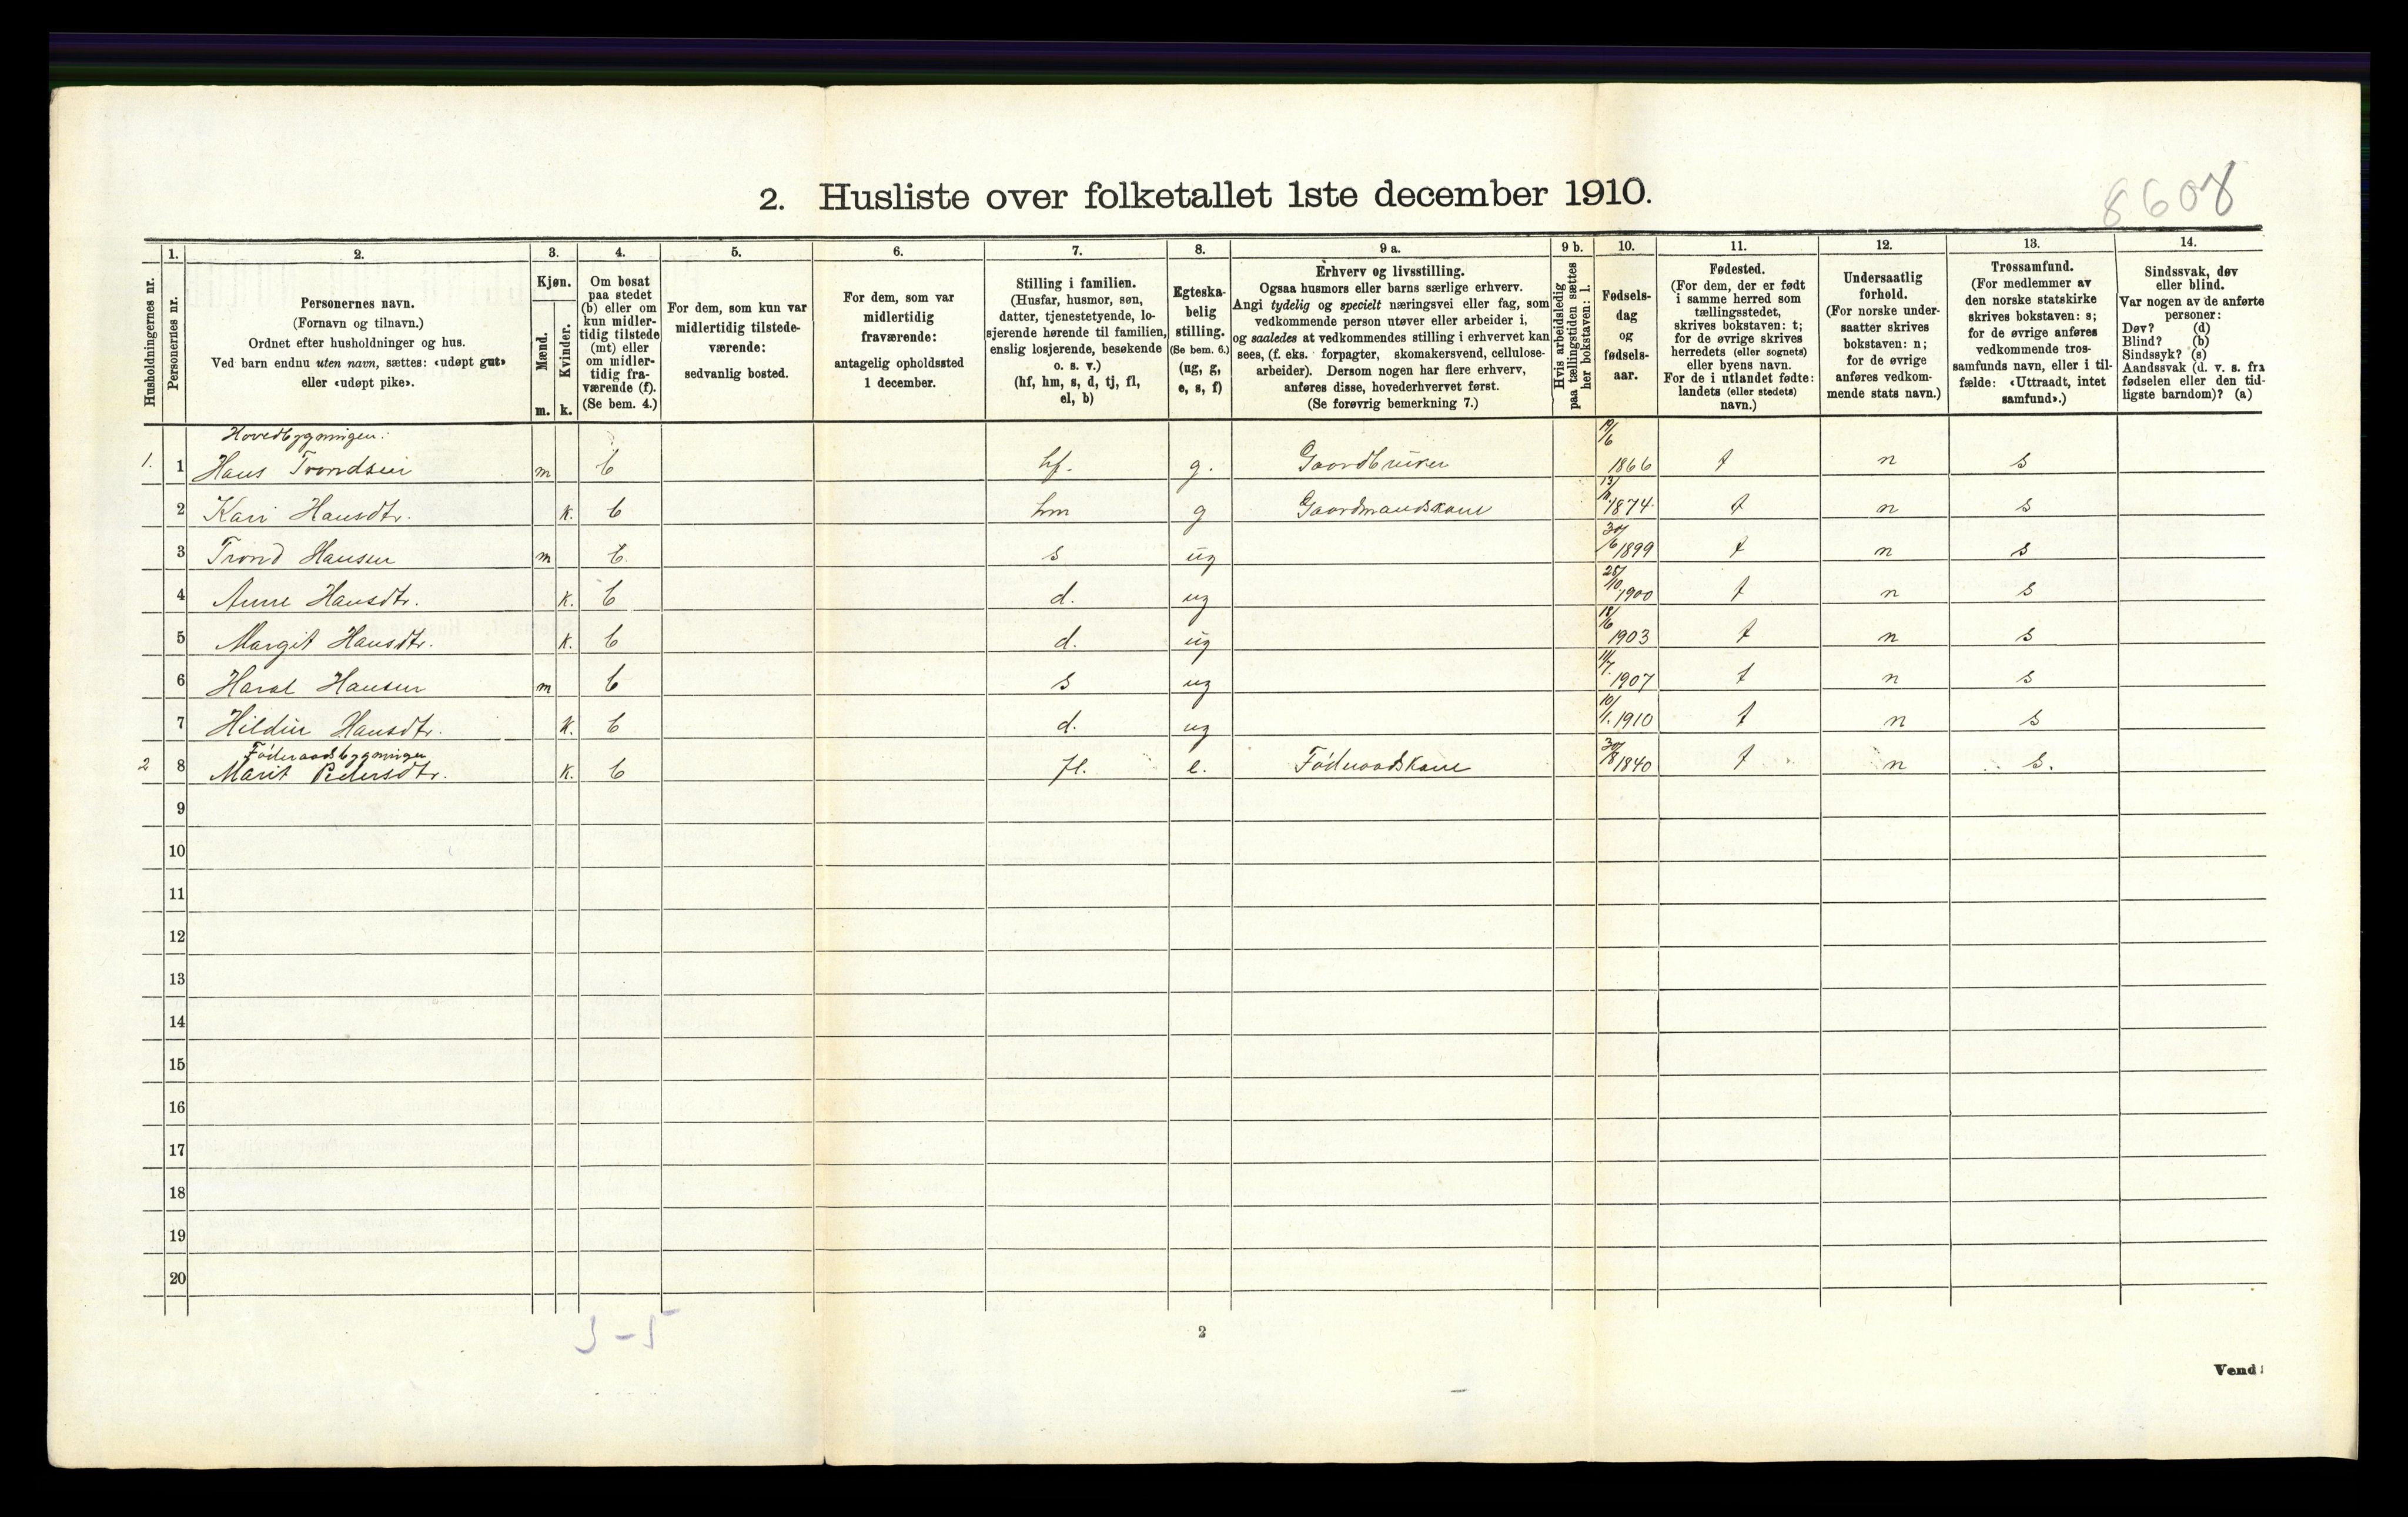 8608
2. Husliste over folketallet 1ste december 1910.
Husholdningernes nr.
1.
Personernes nr.
2.
Personernes navn.
(Fornavn og tilnavn.)
Ordnet efter husholdninger og hus.
Ved barn endnu uten navn, sættes: «udøpt gut»
eller «udøpt pike».
3.
Kjøn.
Mænd.
m.
Kvinder.
k.
4.
Om bosat
paa stedet
(b) eller om
kun midler-
tidig tilstede
(mt) eller
om midler-
tidig fra-
værende (f).
(Se bem. 4.)
5.
For dem, som kun var
midlertidig tilstede-
værende:
sedvanlig bosted.
6.
For dem, som var
midlertidig
fraværende:
antagelig opholdssted
1 december.
7.
Stilling i familien.
(Husfar, husmor, søn,
datter, tjenestetyende, lo-
sjerende hørende til familien,
enslig losjerende, besøkende
o. s. v.)
(hf, hm, s, d, tj, fl,
el, b)
8.
Egteska-
belig
stilling.
(Se bem. 6.)
(ug, g,
e, s, f)
9 a.
Erhverv og livsstilling.
Ogsaa husmors eller barns særlige erhverv.
Angi tydelig og specielt næringsvei eller fag, som
vedkommende person utøver eller arbeider i,
og saaledes at vedkommendes stilling i erhvervet kan
sees, (f. eks. forpagter, skomakersvend, cellulose-
arbeider). Dersom nogen har flere erhverv,
anføres disse, hovederhvervet først.
(Se forøvrig bemerkning 7.)
9 b.
Hvis arbeidsledig
paa tællingstiden sættes
her bokstaven: l.
10.
Fødsels-
dag
og
fødsels-
aar.
11.
Fødested.
(For dem, der er født
i samme herred som
tællingsstedet,
skrives bokstaven: t;
for de øvrige skrives
herredets (eller sognets)
eller byens navn.
For de i utlandet fødte:
landets (eller stedets)
navn.)
12.
Undersaatlig
forhold.
(For norske under-
saatter skrives
bokstaven: n;
for de øvrige
anføres vedkom-
mende stats navn.)
13.
Trossamfund.
(For medlemmer av
den norske statskirke
skrives bokstaven: s;
for de øvrige anføres
vedkommende tros-
samfunds navn, eller i til-
fælde: «Uttraadt, intet
samfund».)
14.
Sindssvak, døv
eller blind.
Var nogen av de anførte
personer:
Døv? (d)
Blind? (b)
Sindssyk? (s)
Aandssvak (d. v. s. fra
fødselen eller den tid-
ligste barndom)? (a)
Hovedbygningen:
1. 1 Hans Trondsen m b hf. g. Gaardbruker 19/6 1866 t n s
2 Kari Hansdtr. k. b hm g Gaardmandskone 1874 t n s
3 Trond Hansen m b s ug 30/6 1899 t n s
4 Anne Hansdtr. k. b d. ug 25/10 1900 t n s
5 Margit Hansdtr. k. b d. ug 18/6 1903 t n s
6 Haral Hansen m b s ug 1907 t n s
7 Hildur Hansdtr. k. b d. ug 10/1. 1910 t n s
Føderaadsbygningen
2 8 Marit Pedersdtr. k. b fl. e. Føderaadskone 30/8 1840 t n s.
9
10
11
12
13
14
15
16
17
18
19
20
3-5
2
Vend!